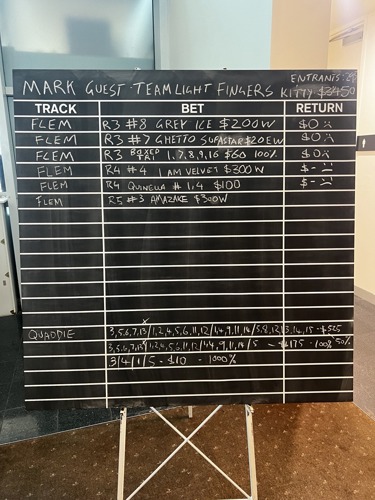 MARK GUEST - TEAM LIGHT FINGERS ENTRANTS: KITTY $3450
TRACK BET RETURN
FLEM R3 #8 GREY ICE $200W $0
FLEM R3 #7 GHETTO SUPASTAR $20EW $0
FLEM R3 BOXED TRI 1,7,8,9,16 $60 100% $0
FLEM R4 #4 I AM VELVET $300W $-
FLEM R4 QUINELLA # 1,4 $100 $-
FLEM R5 #3 AMAZAKE $300W
QUADDIE 3,5,6,7,13/1,2,4,5,6,11,12/4,9,11,14/5,8,12/3,14,15 - $525
3,5,6,7,13/1,2,4,5,6,11,12/4,9,11,14/5 - $175 - 100% 50%
3/4/1/5 - $10 - 1000%